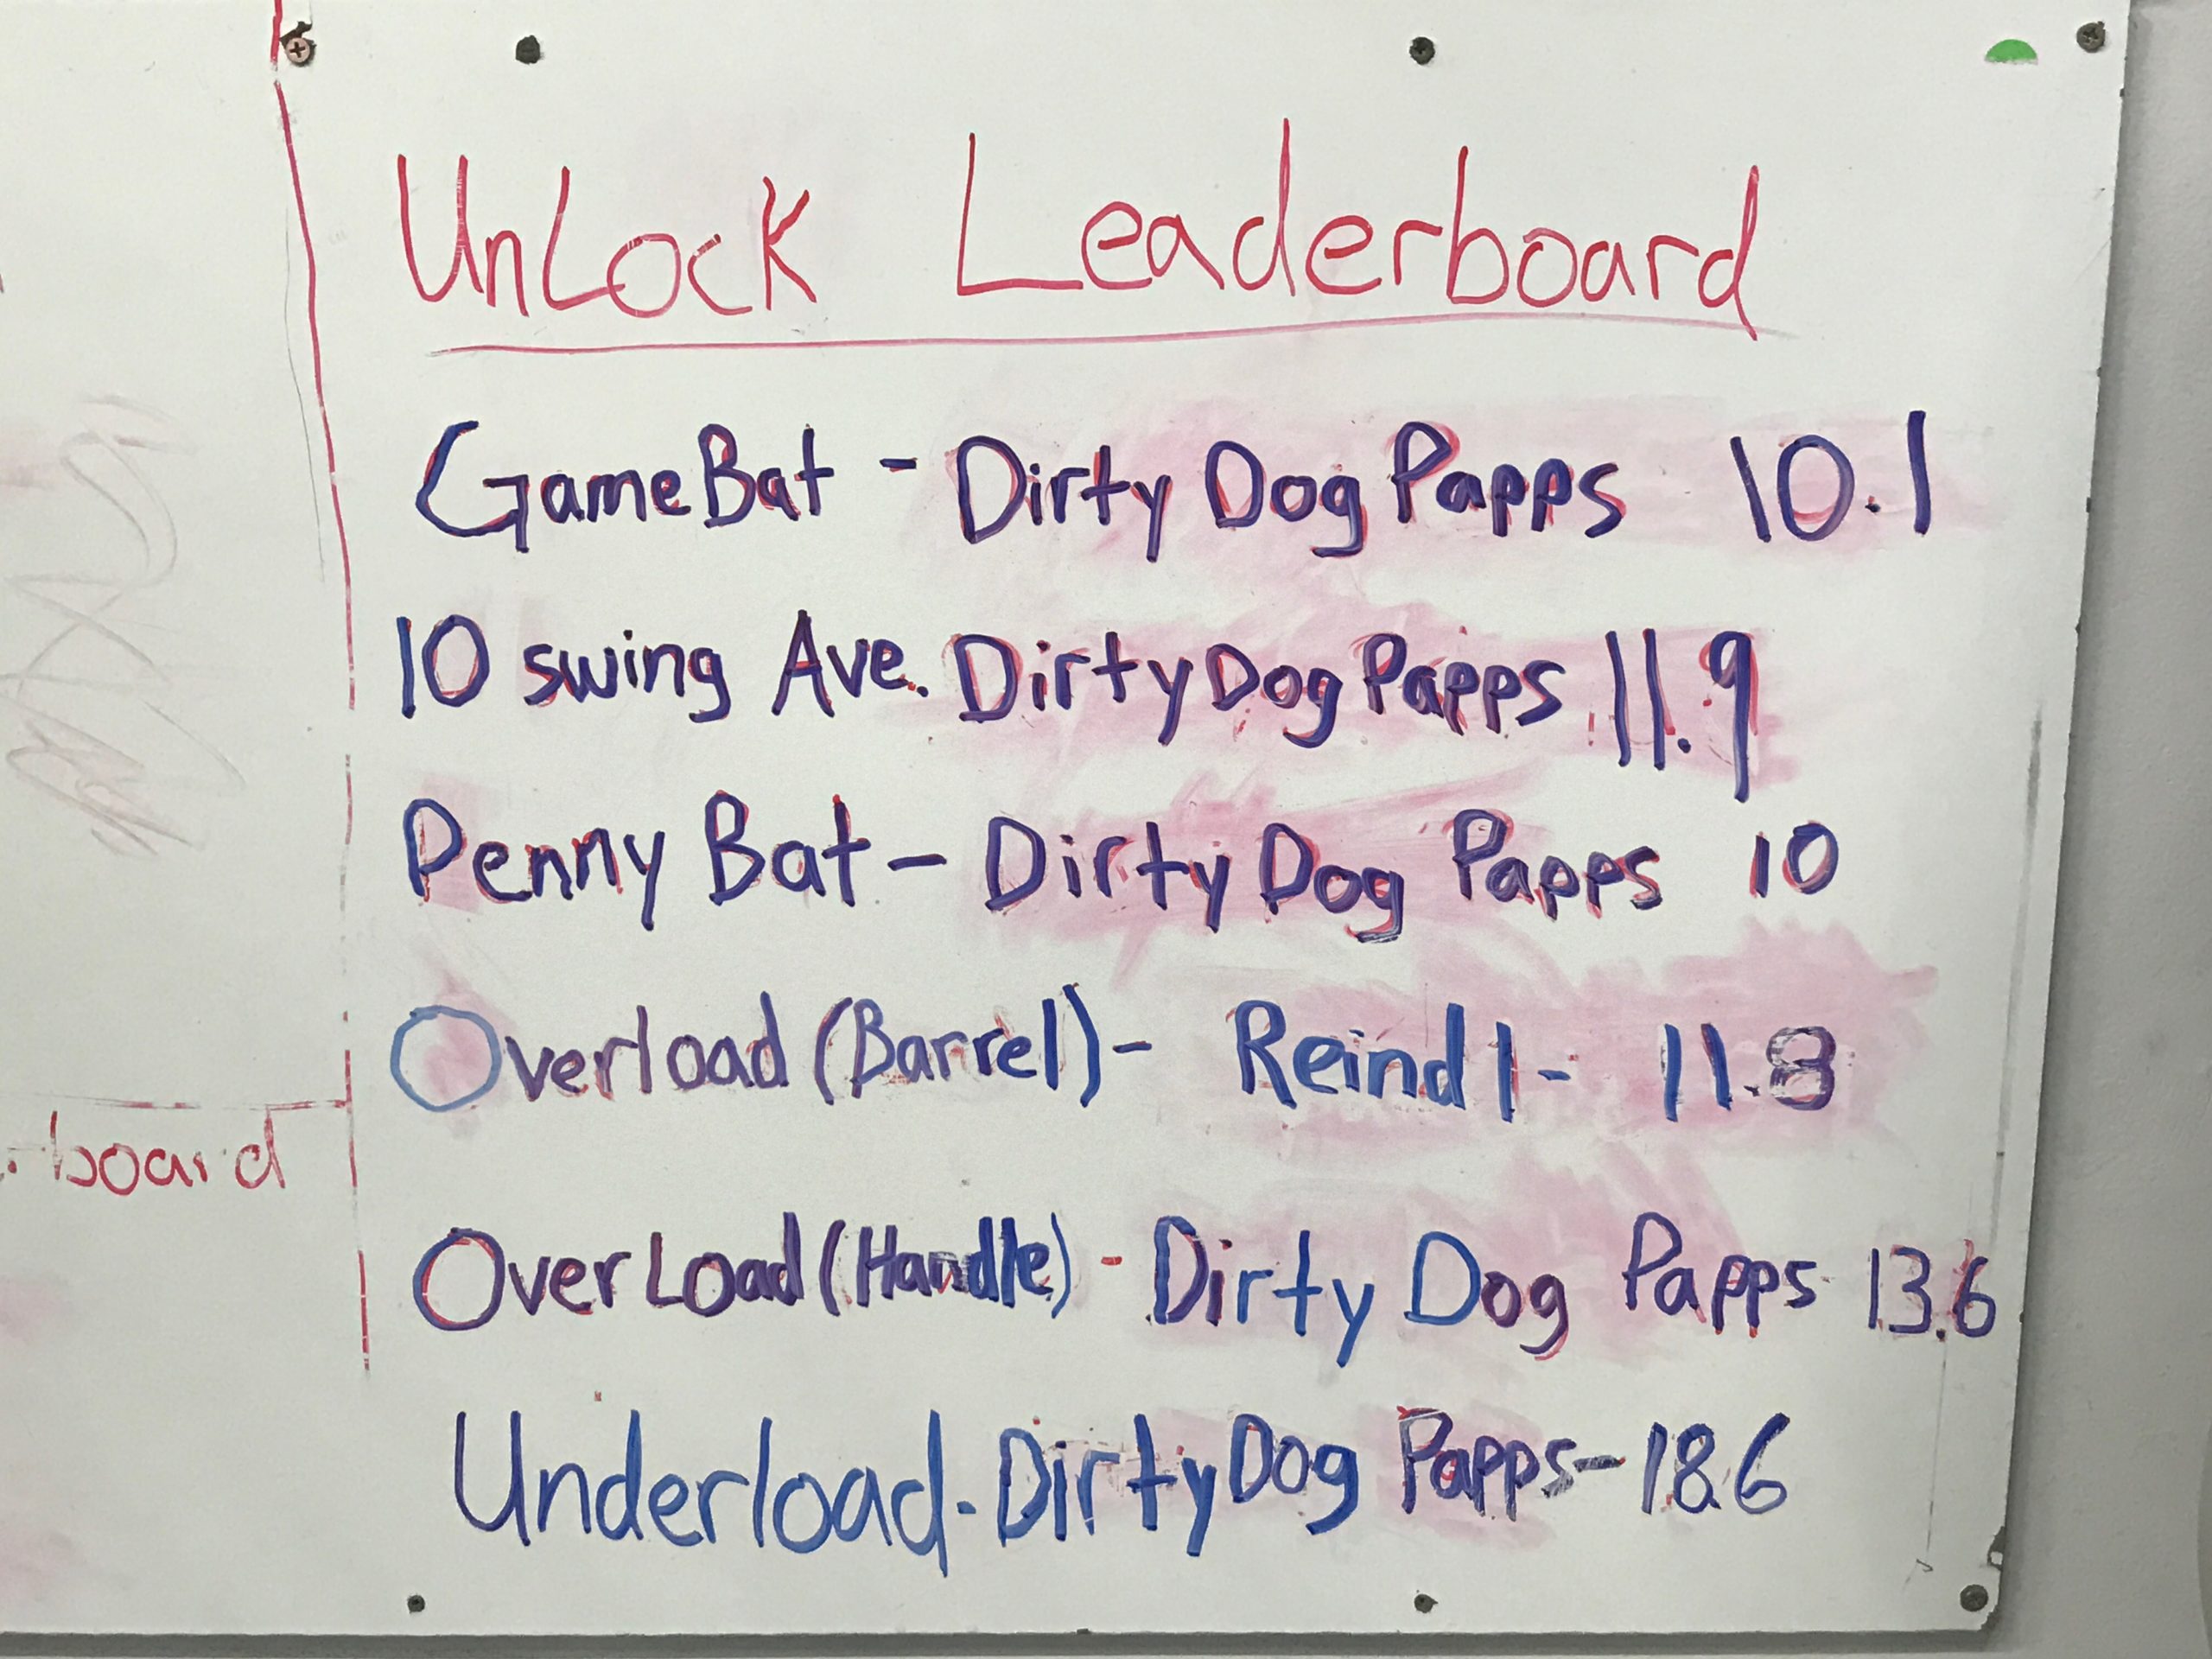 UnLock Leaderboard
GameBat - Dirty Dog Papps 10.1
10 swing Ave. Dirty Dog Papps 11.9
Penny Bat - Dirty Dog Papps 10
Overload (Barrel) - Reindl - 11.8
board
OverLoad (Handle) - Dirty Dog Papps 13.6
Underload - Dirty Dog Papps - 18.6